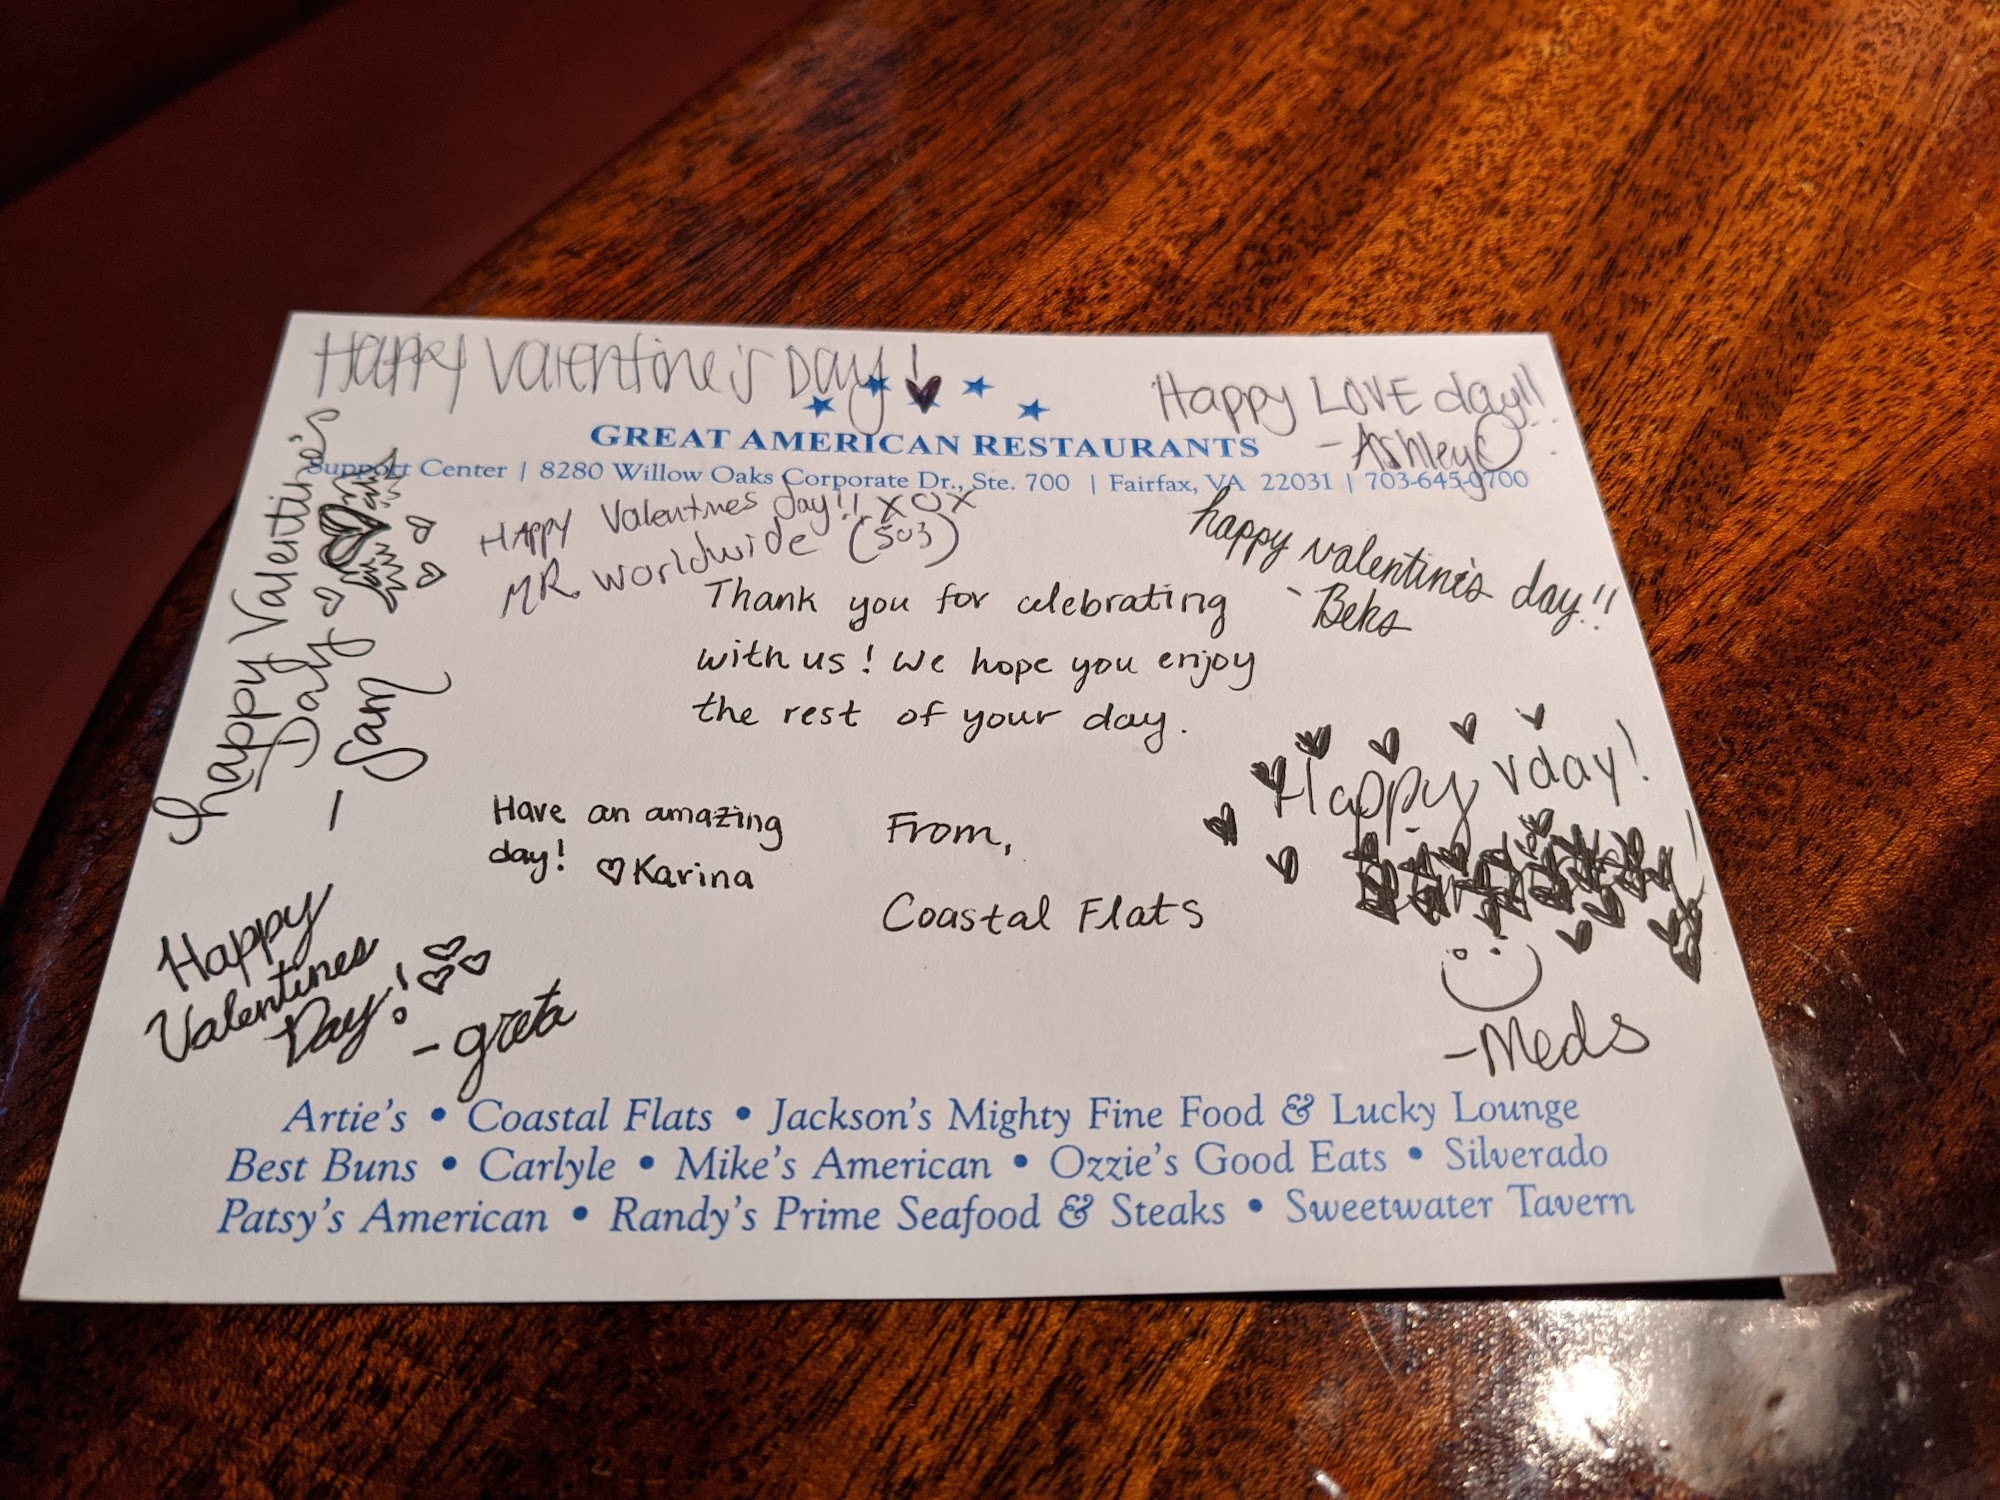 Happy Valentine's Day!
GREAT AMERICAN RESTAURANTS
Support Center | 8280 Willow Oaks Corporate Dr., Ste. 700 | Fairfax, VA 22031 | 703-645-0700
Happy LOVE day!!
-Ashley C
happy Valentine's
Day
- Sam
Happy Valentines Day!! XOX
MR. Worldwide (503)
happy valentine's day!!
- Beks
Thank you for celebrating
with us! We hope you enjoy
the rest of your day.
Have an amazing
day! ♡Karina
From,
Coastal Flats
Happy vday!
-Meds
Happy
Valentines
Day!
-greta
Artie's • Coastal Flats • Jackson's Mighty Fine Food & Lucky Lounge
Best Buns • Carlyle • Mike's American • Ozzie's Good Eats • Silverado
Patsy's American • Randy's Prime Seafood & Steaks • Sweetwater Tavern